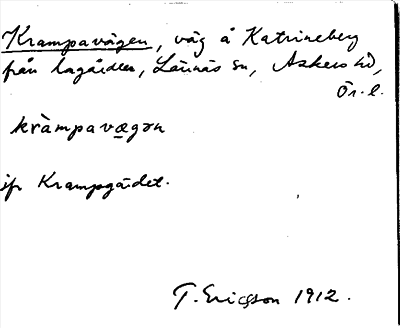 Krampavägen, väg å Katrineberg
från lagården, Lännäs sn, Askers hd,
Ör. l.
kràmpavægən
jfr Krampgärdet.
T. Ericsson 1912.